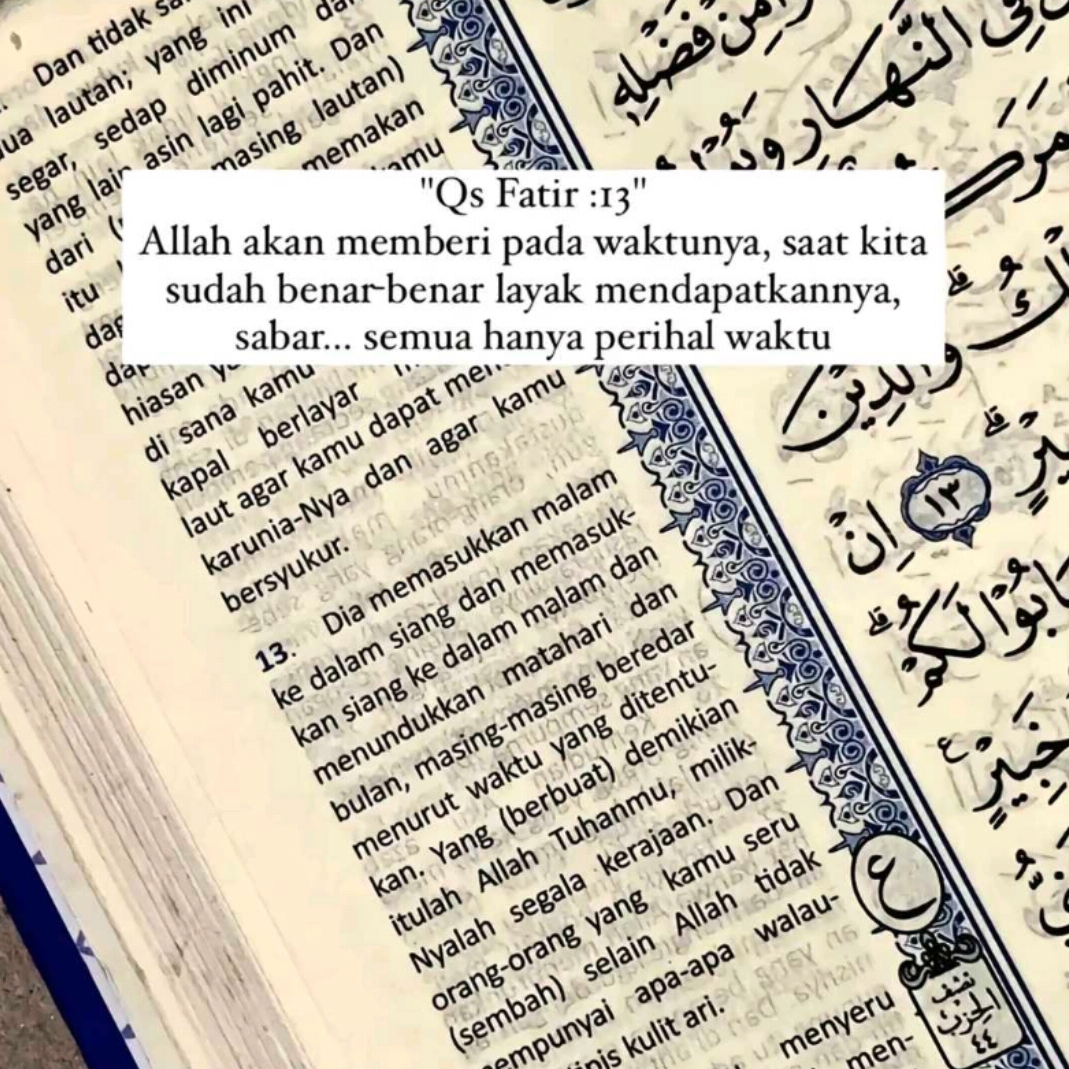 "Qs Fatir :13"
Allah akan memberi pada waktunya, saat kita
sudah benar-benar layak mendapatkannya,
sabar... semua hanya perihal waktu
Dan tidak
lautan; yang ini
segar, sedap diminum
yang lain asin lagi pahit. Dan
dari masing lautan)
itu memakan
kamu
hiasan
di sana kamu
kapal berlayar
laut agar kamu dapat
karunia-Nya dan agar kamu
bersyukur.
13. Dia memasukkan malam
ke dalam siang dan memasuk-
kan siang ke dalam malam dan
menundukkan matahari dan
bulan, masing-masing beredar
menurut waktu yang ditentu-
kan. Yang (berbuat) demikian
itulah Allah Tuhanmu, milik-
Nyalah segala kerajaan. Dan
orang-orang yang kamu seru
(sembah) selain Allah tidak
apa-apa walau-
kulit ari.
menyeru
men-
مِنْ فَضْلِهٖ
فِى النَّهَارِ
وَالَّذِيْنَ
١٣ اِنْ
لَكُمْ
خَبِيْرٍ
ع
نصف
الحزب
٤٤